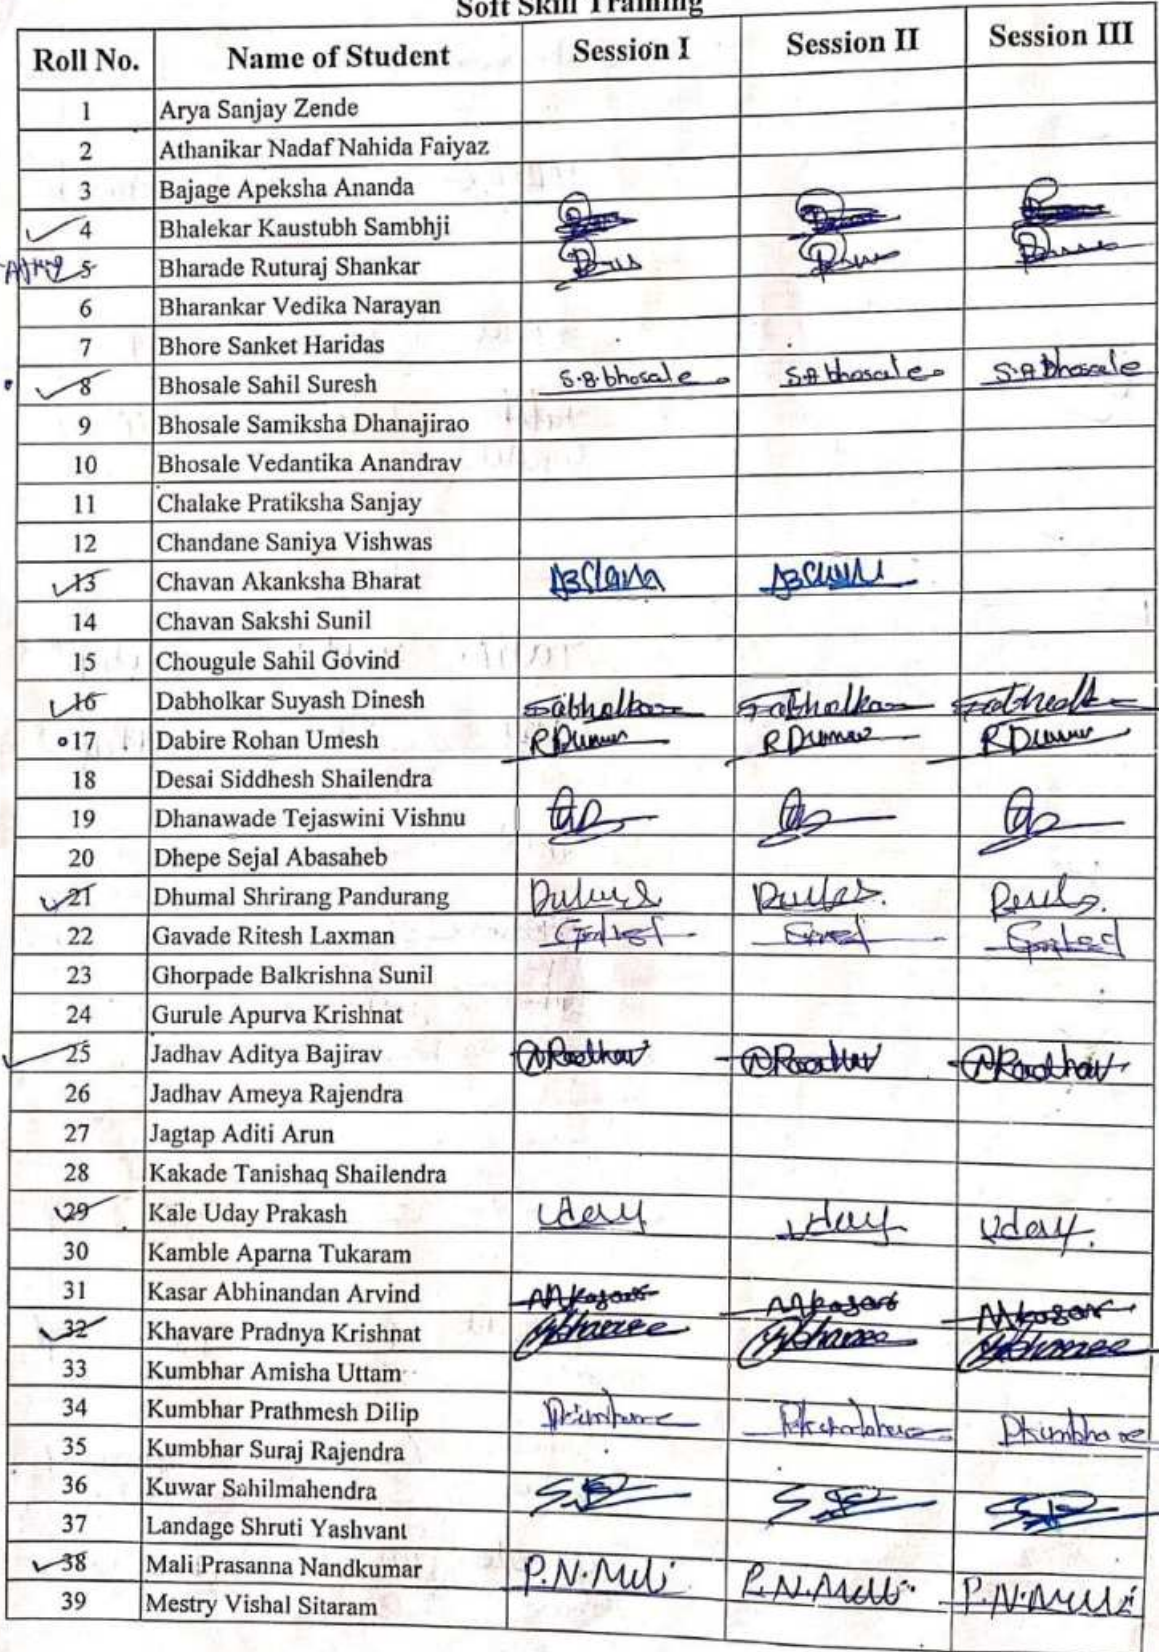 Soft Skill Training
Roll No. Name of Student Session I Session II Session III
1 Arya Sanjay Zende
2 Athanikar Nadaf Nahida Faiyaz
3 Bajage Apeksha Ananda
4 Bhalekar Kaustubh Sambhji
5 Bharade Ruturaj Shankar
6 Bharankar Vedika Narayan
7 Bhore Sanket Haridas
8 Bhosale Sahil Suresh S.B.bhosale S.A bhosale S.A Bhosale
9 Bhosale Samiksha Dhanajirao
10 Bhosale Vedantika Anandrav
11 Chalake Pratiksha Sanjay
12 Chandane Saniya Vishwas
13 Chavan Akanksha Bharat
14 Chavan Sakshi Sunil
15 Chougule Sahil Govind
16 Dabholkar Suyash Dinesh
17 Dabire Rohan Umesh
18 Desai Siddhesh Shailendra
19 Dhanawade Tejaswini Vishnu
20 Dhepe Sejal Abasaheb
21 Dhumal Shrirang Pandurang
22 Gavade Ritesh Laxman
23 Ghorpade Balkrishna Sunil
24 Gurule Apurva Krishnat
25 Jadhav Aditya Bajirav
26 Jadhav Ameya Rajendra
27 Jagtap Aditi Arun
28 Kakade Tanishaq Shailendra
29 Kale Uday Prakash Uday Uday Uday.
30 Kamble Aparna Tukaram
31 Kasar Abhinandan Arvind AAkasar AAkasar AAkasar
32 Khavare Pradnya Krishnat
33 Kumbhar Amisha Uttam
34 Kumbhar Prathmesh Dilip
35 Kumbhar Suraj Rajendra
36 Kuwar Sahilmahendra
37 Landage Shruti Yashvant
38 Mali Prasanna Nandkumar P.N.Mali P.N.Mali P.N.Mali
39 Mestry Vishal Sitaram